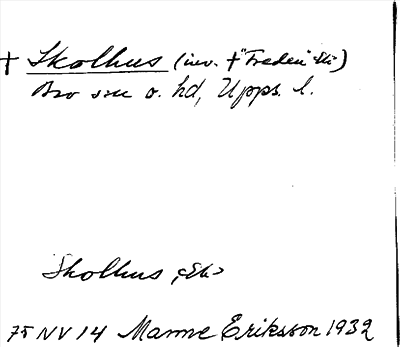 † Skolhus (inv. † "Freden" Sk)
Bro sn o. hd, Upps. l.
Skolhus, <Sk>
75 NV 14 Manne Eriksson 1932